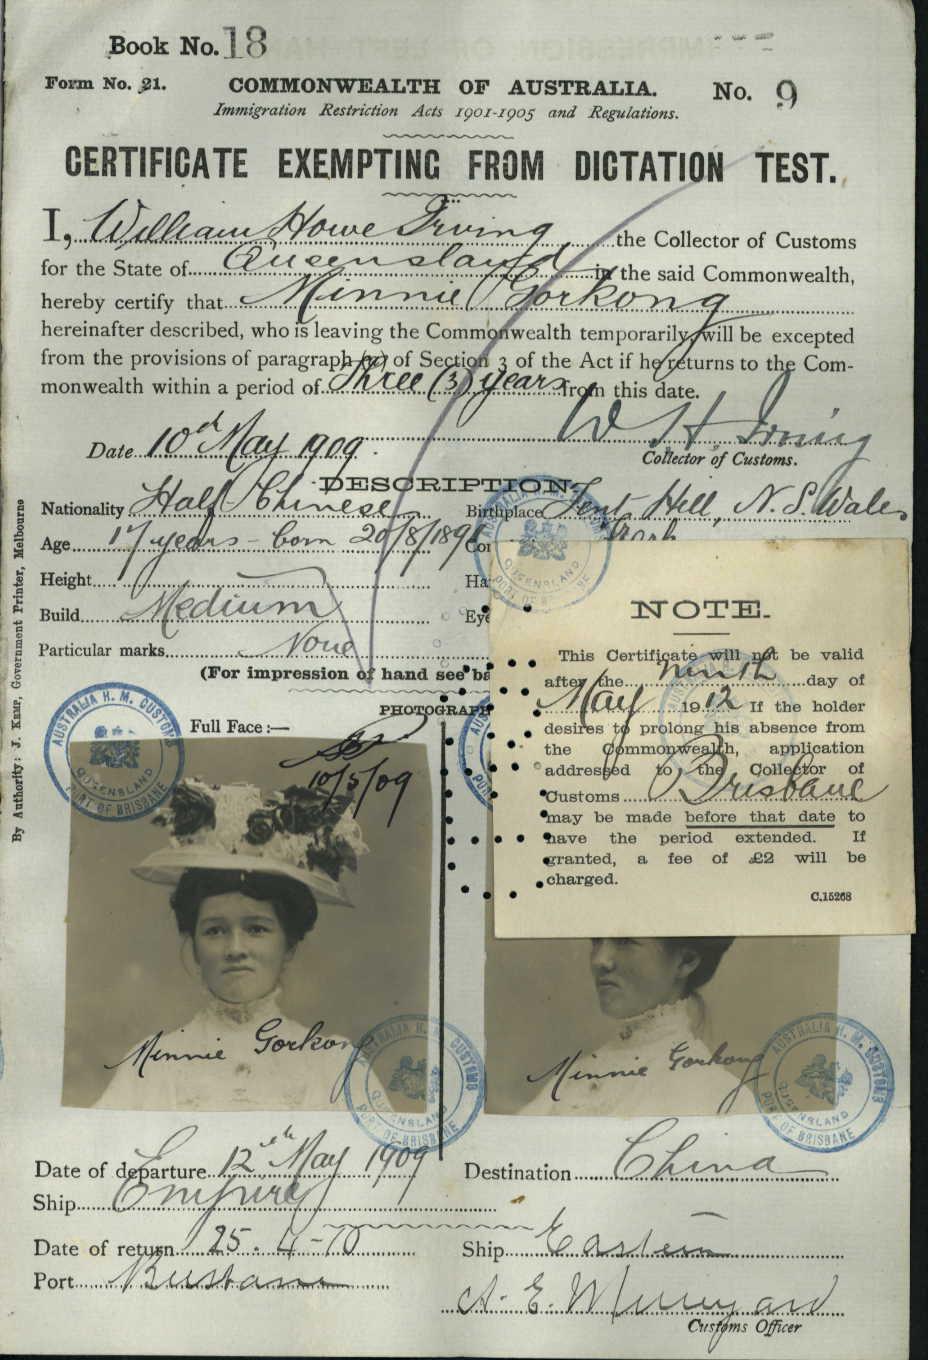 Book No. 18
Form No. 21. COMMONWEALTH OF AUSTRALIA. No. 9
Immigration Restriction Acts 1901-1905 and Regulations.
CERTIFICATE EXEMPTING FROM DICTATION TEST.
I, William Howe Irving the Collector of Customs
for the State of Queensland in the said Commonwealth,
hereby certify that Minnie Gorkong
hereinafter described, who is leaving the Commonwealth temporarily, will be excepted
from the provisions of paragraph (a) of Section 3 of the Act if he returns to the Com-
monwealth within a period of Three (3) years from this date.
W. H. Irving
Date 10th May 1909.
Collector of Customs.
DESCRIPTION.
Nationality Half Chinese Birthplace Tent Hill, N. S. Wales
Age 17 years - born 20/8/189
Height
Build Medium Eye
Particular marks None
(For impression of hand see ba
PHOTOGRAPH
Full Face :—
10/5/09
NOTE.
This Certificate will not be valid
after the ninth day of
May 1912 If the holder
desires to prolong his absence from
the Commonwealth, application
addressed to the Collector of
Customs Brisbane
may be made before that date to
have the period extended. If
granted, a fee of £2 will be
charged.
C.15268
AUSTRALIA H. M. CUSTOMS
QUEENSLAND
PORT OF BRISBANE
Minnie Gorkong
Minnie Gorkong
AUSTRALIA H. M. CUSTOMS
QUEENSLAND
PORT OF BRISBANE
AUSTRALIA H. M. CUSTOMS
QUEENSLAND
PORT OF BRISBANE
Date of departure 12th May 1909 Destination China
Ship Empire
Date of return 25. 4-10 Ship Eastern
Port Brisbane
A. E.
Customs Officer
By Authority: J. KEMP, Government Printer, Melbourne